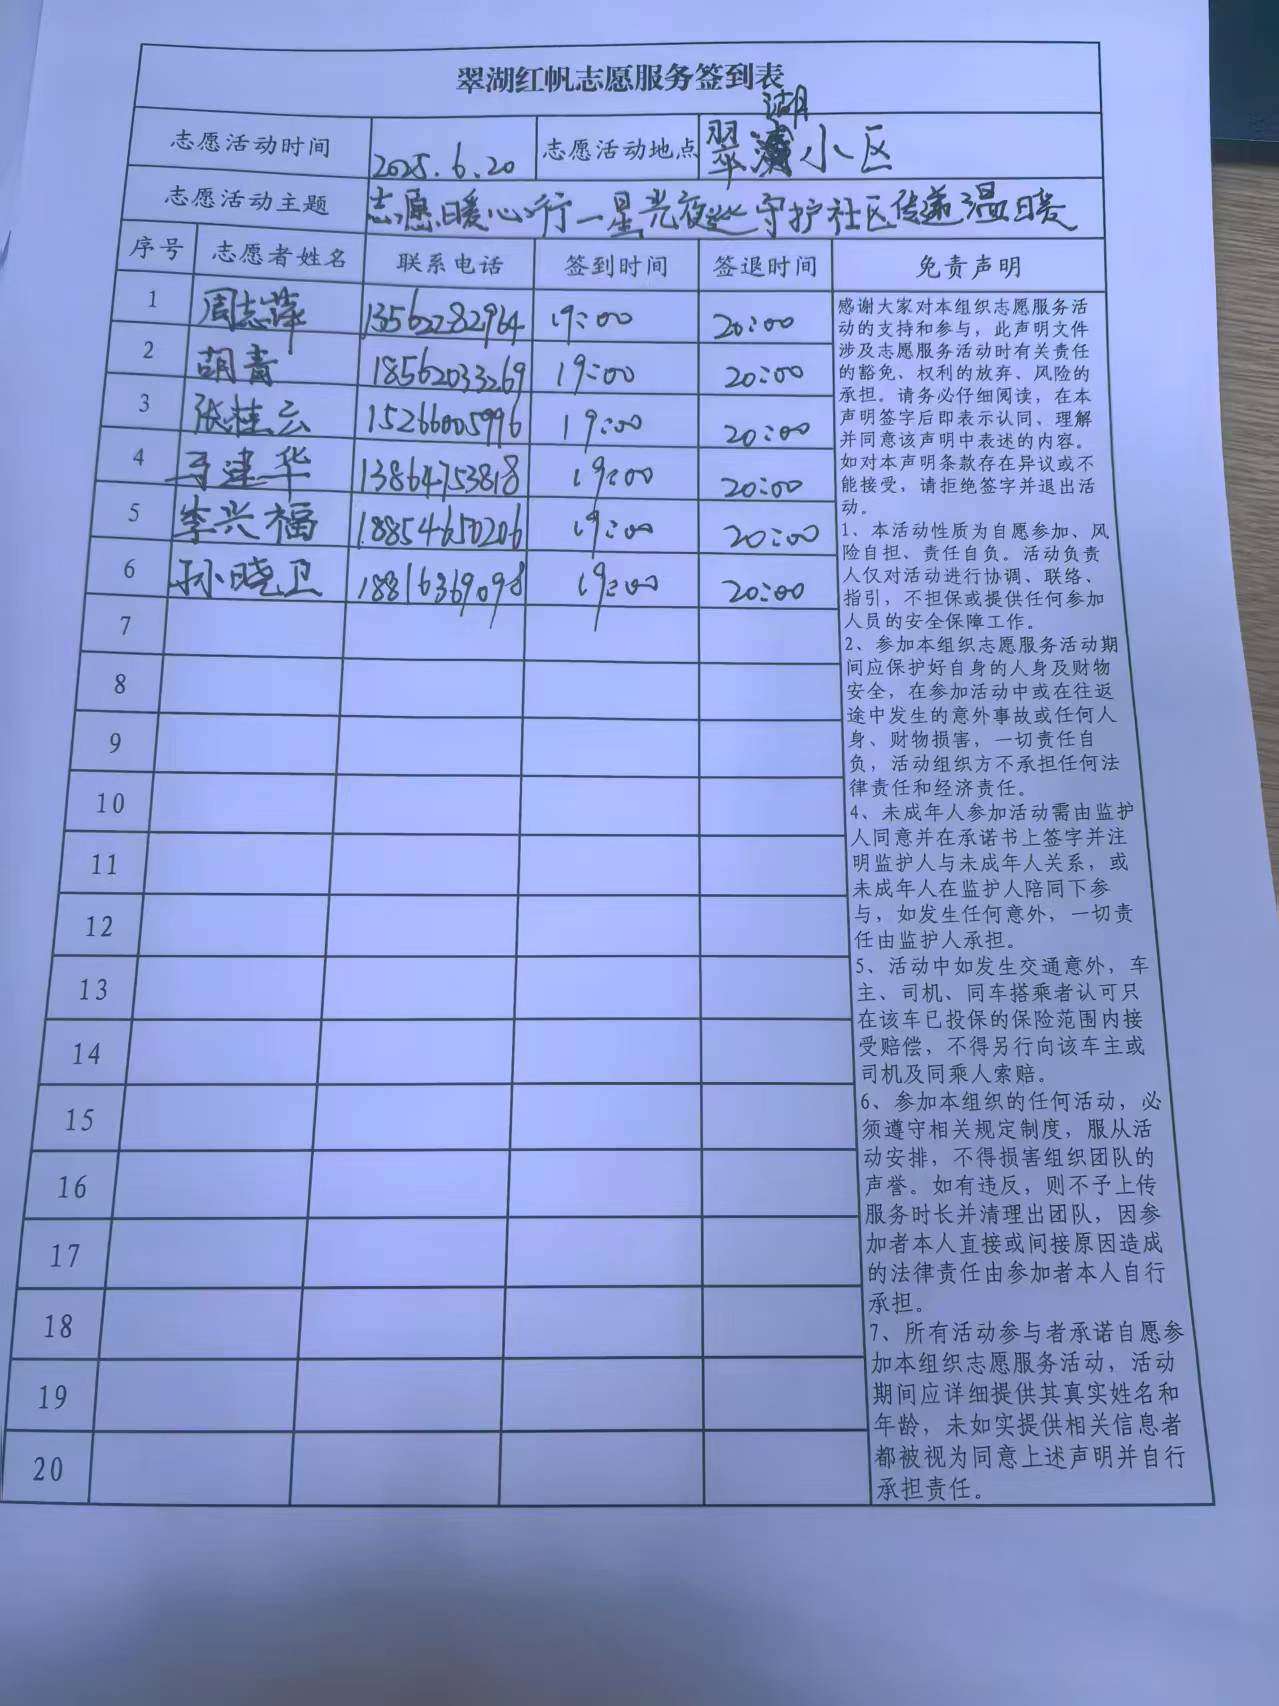 翠湖红帆志愿服务签到表
志愿活动时间 2025.6.20 志愿活动地点 翠湖小区
志愿活动主题 志愿暖心行一星光夜巡守护社区传递温暖
序号 志愿者姓名 联系电话 签到时间 签退时间 免责声明
1 周志萍 13562282964 19:00 20:00
2 胡青 18562033269 19:00 20:00
3 张桂云 15266005996 19:00 20:00
4 建华 13864753818 19:00 20:00
5 李兴福 18854650206 19:00 20:00
6 孙晓卫 18816369098 19:00 20:00
7
8
9
10
11
12
13
14
15
16
17
18
19
20
感谢大家对本组织志愿服务活
动的支持和参与，此声明文件
涉及志愿服务活动时有关责任
的豁免、权利的放弃、风险的
承担。请务必仔细阅读，在本
声明签字后即表示认同、理解
并同意该声明中表述的内容。
如对本声明条款存在异议或不
能接受，请拒绝签字并退出活
动。
1、本活动性质为自愿参加、风
险自担、责任自负。活动负责
人仅对活动进行协调、联络、
指引，不担保或提供任何参加
人员的安全保障工作。
2、参加本组织志愿服务活动期
间应保护好自身的人身及财物
安全，在参加活动中或在往返
途中发生的意外事故或任何人
身、财物损害，一切责任自
负，活动组织方不承担任何法
律责任和经济责任。
4、未成年人参加活动需由监护
人同意并在承诺书上签字并注
明监护人与未成年人关系，或
未成年人在监护人陪同下参
与，如发生任何意外，一切责
任由监护人承担。
5、活动中如发生交通意外，车
主、司机、同车搭乘者认可只
在该车已投保的保险范围内接
受赔偿，不得另行向该车主或
司机及同乘人索赔。
6、参加本组织的任何活动，必
须遵守相关规定制度，服从活
动安排，不得损害组织团队的
声誉。如有违反，则不予上传
服务时长并清理出团队，因参
加者本人直接或间接原因造成
的法律责任由参加者本人自行
承担。
7、所有活动参与者承诺自愿参
加本组织志愿服务活动，活动
期间应详细提供其真实姓名和
年龄，未如实提供相关信息者
都被视为同意上述声明并自行
承担责任。